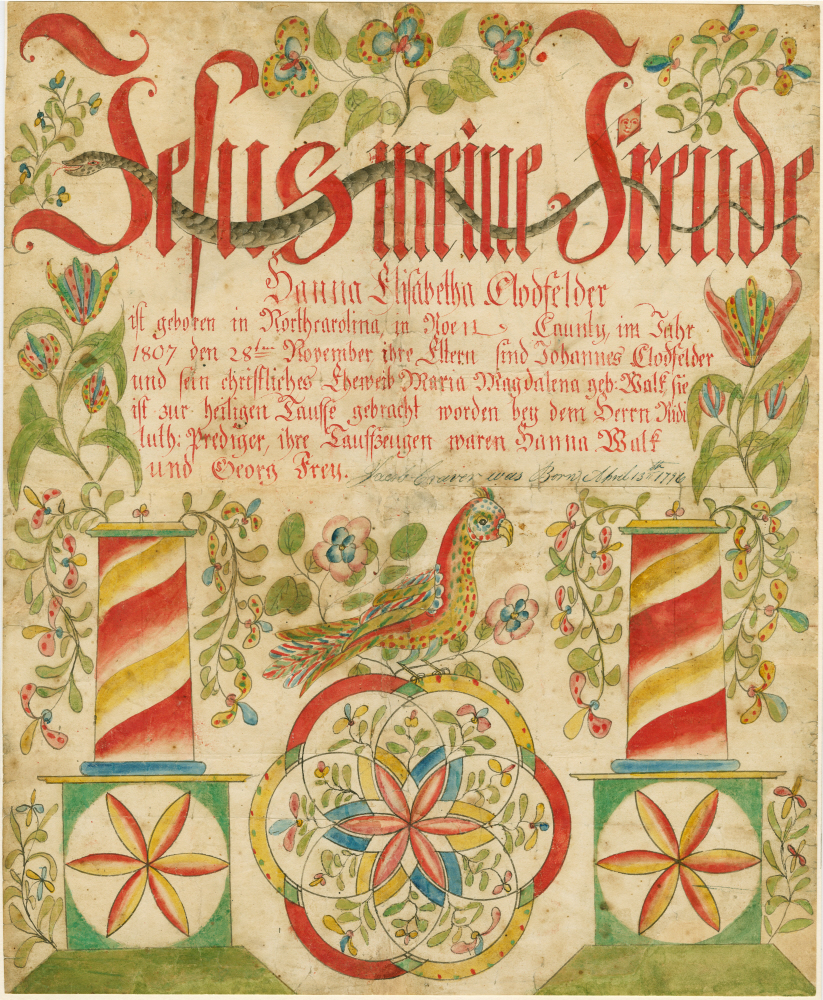 Jesus meine Freude
Hanna Elisabetha Clodfelder
ist geboren in Northcarolina, in Roen Caunty, im Jahr
1807 den 28ten November ihre Eltern sind Johannes Clodfelder
und sein christliches Eheweib Maria Magdalena geb: Walk sie
ist zur heiligen Tauffe gebracht worden bey dem Herrn
luth: Prediger, ihre Tauffzeugen waren Hanna Walk
und Georg Frey. Jacob Craver was Born April 15th 1776